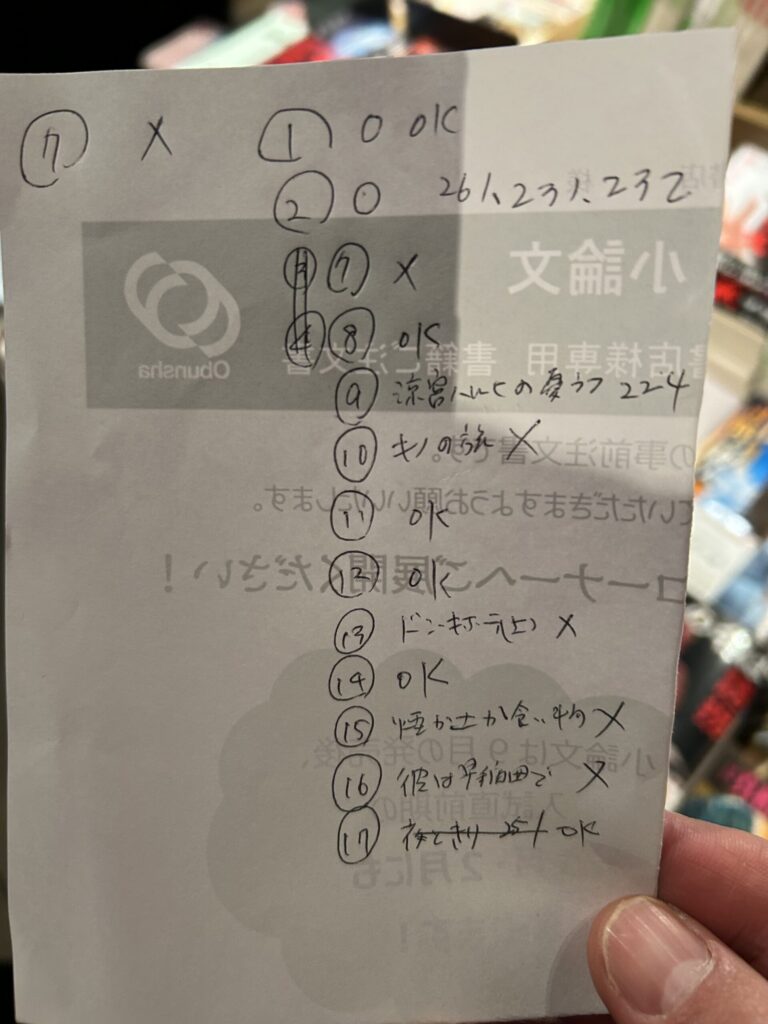 ⑦ × ① ○ OK
② ○ 261、231、232
⑦ ×
⑧ OK
⑨ 涼宮ハルヒの憂うつ 224
⑩ キノの旅 ×
⑪ OK
⑫ OK
⑬ ドンキホーテ(上) ×
⑭ OK
⑮ 煙か土か食い物 ×
⑯ 彼は早稲田で ×
⑰ 夜ときり 251 OK
小論文
Obunsha
書店様専用 書籍ご注文書
の事前注文書です。
ていただきますようお願いいたします。
コーナーへご展開ください！
小論文は9月の発売後、
入試直前期の
2月にも